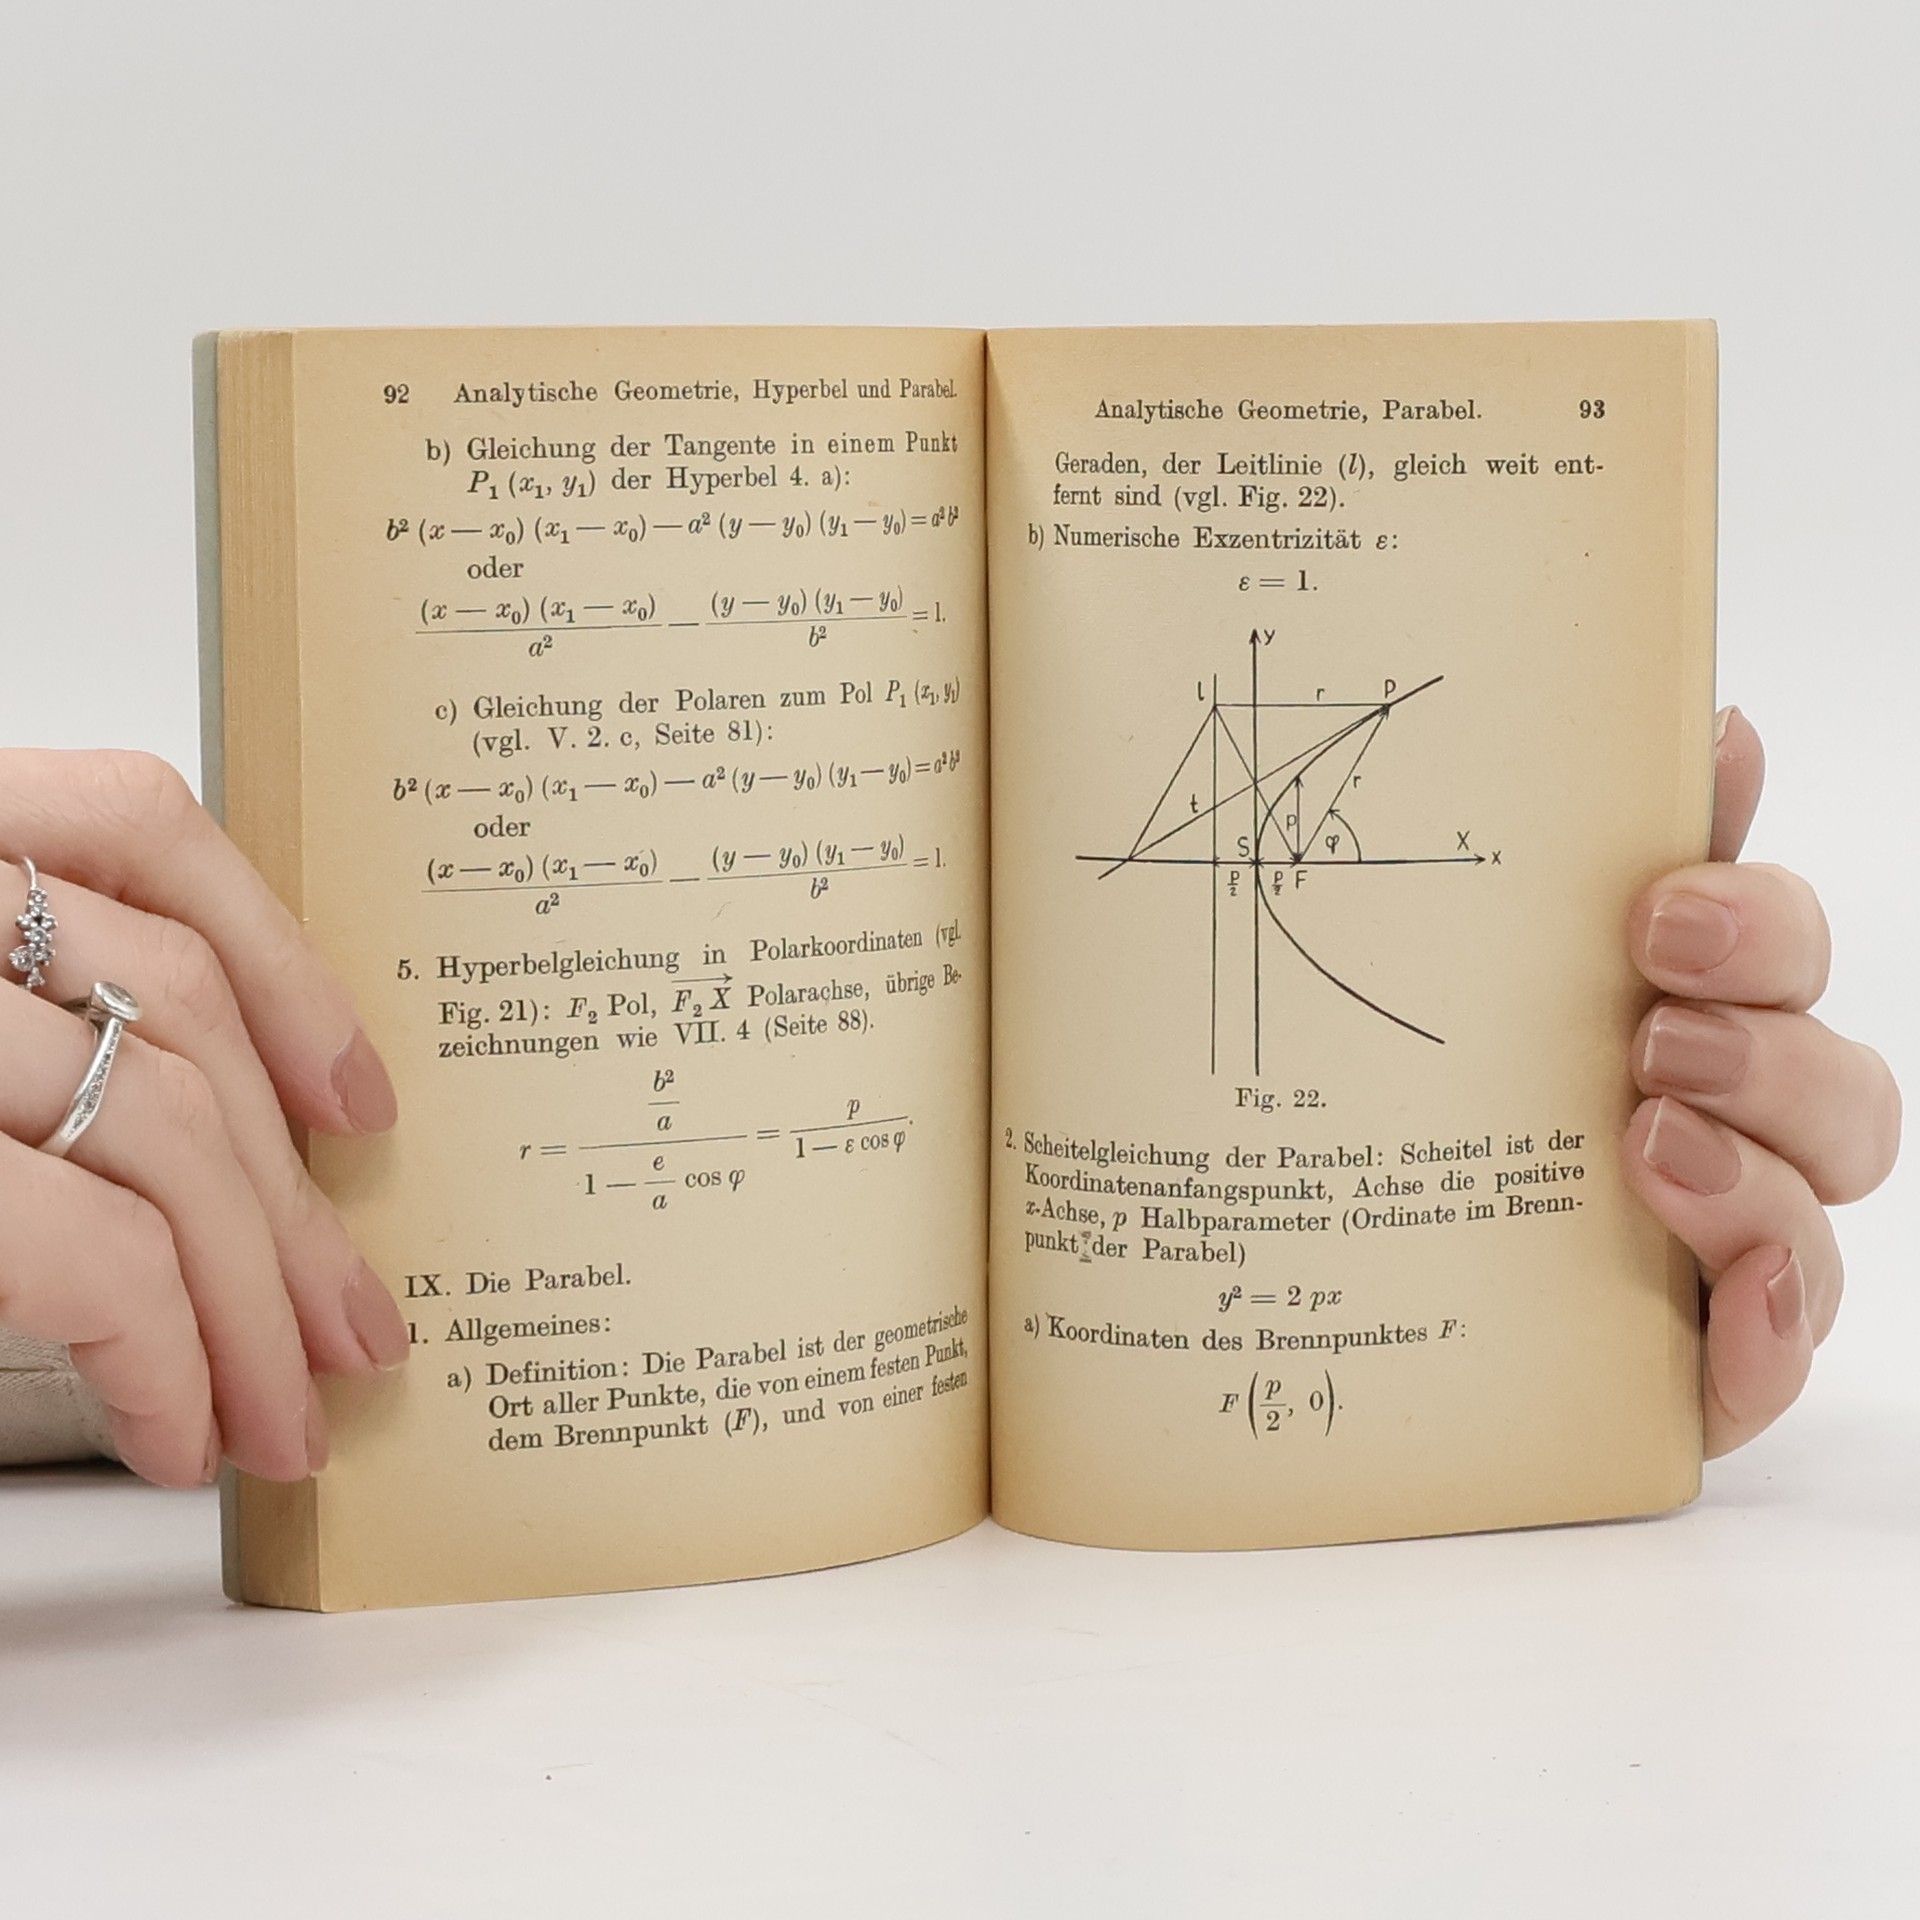 92 Analytische Geometrie, Hyperbel und Parabel.
b) Gleichung der Tangente in einem Punkt
P₁ (x₁, y₁) der Hyperbel 4. a):
b² (x — x₀) (x₁ — x₀) — a² (y — y₀) (y₁ — y₀) = a² b²
oder
(x — x₀) (x₁ — x₀) / a² — (y — y₀) (y₁ — y₀) / b² = 1.
c) Gleichung der Polaren zum Pol P₁ (x₁, y₁)
(vgl. V. 2. c, Seite 81):
b² (x — x₀) (x₁ — x₀) — a² (y — y₀) (y₁ — y₀) = a² b²
oder
(x — x₀) (x₁ — x₀) / a² — (y — y₀) (y₁ — y₀) / b² = 1.
5. Hyperbelgleichung in Polarkoordinaten (vgl.
Fig. 21): F₂ Pol, F₂ X Polarachse, übrige Be-
zeichnungen wie VII. 4 (Seite 88).
r = (b² / a) / (1 — (e / a) cos φ) = p / (1 — ε cos φ).
IX. Die Parabel.
1. Allgemeines:
a) Definition: Die Parabel ist der geometrische
Ort aller Punkte, die von einem festen Punkt,
dem Brennpunkt (F), und von einer festen
Analytische Geometrie, Parabel. 93
Geraden, der Leitlinie (l), gleich weit ent-
fernt sind (vgl. Fig. 22).
b) Numerische Exzentrizität ε:
ε = 1.
y
l r P
r
t p
S φ X x
p/2 p/2 F
Fig. 22.
2. Scheitelgleichung der Parabel: Scheitel ist der
Koordinatenanfangspunkt, Achse die positive
x-Achse, p Halbparameter (Ordinate im Brenn-
punkt der Parabel)
y² = 2 px
a) Koordinaten des Brennpunktes F:
F (p/2, 0).